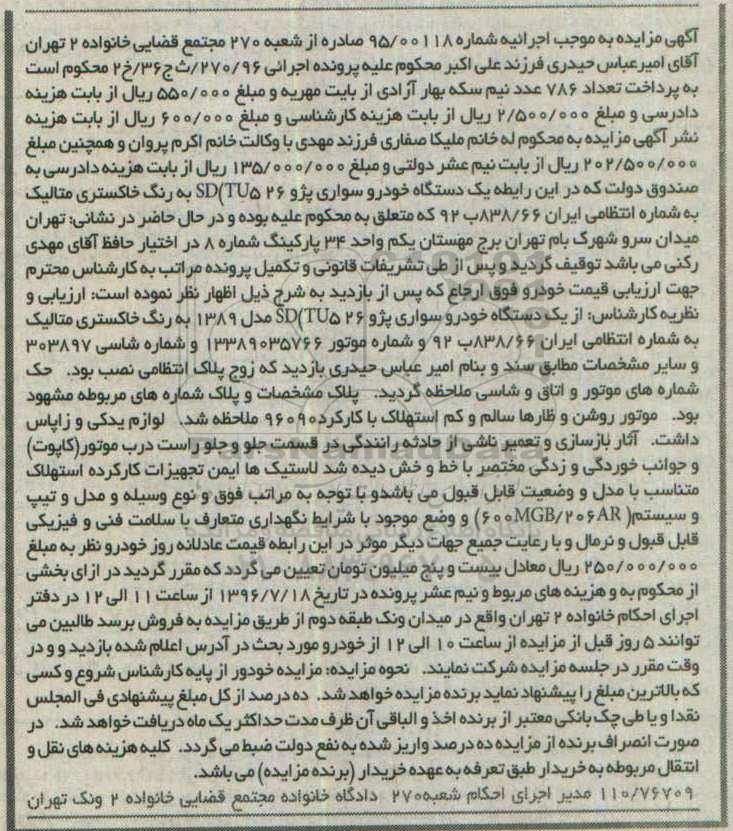 آگهی مزایده به موجب اجرائیه شماره ۹۵/۰۰۱۱۸ صادره از شعبه ۲۷۰ مجتمع قضایی خانواده ۲ تهران
آقای امیرعباس حیدری فرزند علی اکبر محکوم علیه پرونده اجرائی ۲۷۰/۹۶/ث ج۳۶/خ۲ محکوم است
به پرداخت تعداد ۷۸۶ عدد نیم سکه بهار آزادی از بابت مهریه و مبلغ ۵۵۰/۰۰۰ ریال از بابت هزینه
دادرسی و مبلغ ۲/۵۰۰/۰۰۰ ریال از بابت هزینه کارشناسی و مبلغ ۶۰۰/۰۰۰ ریال از بابت هزینه
نشر آگهی مزایده به محکوم له خانم ملیکا صفاری فرزند مهدی با وکالت خانم اکرم پروان و همچنین مبلغ
۲۰۲/۵۰۰/۰۰۰ ریال از بابت نیم عشر دولتی و مبلغ ۱۳۵/۰۰۰/۰۰۰ ریال از بابت هزینه دادرسی به
صندوق دولت که در این رابطه یک دستگاه خودرو سواری پژو ۲۶ SD(TU۵ به رنگ خاکستری متالیک
به شماره انتظامی ایران ۸۳۸/۶۶ب ۹۲ که متعلق به محکوم علیه بوده و در حال حاضر در نشانی: تهران
میدان سرو شهرک بام تهران برج مهستان یکم واحد ۳۴ پارکینگ شماره ۸ در اختیار حافظ آقای مهدی
رکنی می باشد توقیف گردید و پس از طی تشریفات قانونی و تکمیل پرونده مراتب به کارشناس محترم
جهت ارزیابی قیمت خودرو فوق ارجاع که پس از بازدید به شرح ذیل اظهار نظر نموده است: ارزیابی و
نظریه کارشناس: از یک دستگاه خودرو سواری پژو ۲۶ SD(TU۵ مدل ۱۳۸۹ به رنگ خاکستری متالیک
به شماره انتظامی ایران ۸۳۸/۶۶ب ۹۲ و شماره موتور ۱۳۳۸۹۰۳۵۷۶۶ و شماره شاسی ۳۰۳۸۹۷
و سایر مشخصات مطابق سند و بنام امیر عباس حیدری بازدید که زوج پلاک انتظامی نصب بود. حک
شماره های موتور و اتاق و شاسی ملاحظه گردید. پلاک مشخصات و پلاک شماره های مربوطه مشهود
بود. موتور روشن و ظارها سالم و کم استهلاک با کارکرد۹۶۰۹۰ ملاحظه شد. لوازم یدکی و زاپاس
داشت. آثار بازسازی و تعمیر ناشی از حادثه رانندگی در قسمت جلو و جلو راست درب موتور(کاپوت)
و جوانب خوردگی و زدگی مختصر با خط و خش دیده شد لاستیک ها ایمن تجهیزات کارکرده استهلاک
متناسب با مدل و وضعیت قابل قبول می باشدو با توجه به مراتب فوق و نوع وسیله و مدل و تیپ
و سیستم( ۶۰۰MGB/۲۰۶AR) و وضع موجود با شرایط نگهداری متعارف با سلامت فنی و فیزیکی
قابل قبول و نرمال و با رعایت جمیع جهات دیگر موثر در این رابطه قیمت عادلانه روز خودرو نظر به مبلغ
۲۵۰/۰۰۰/۰۰۰ ریال معادل بیست و پنج میلیون تومان تعیین می گردد که مقرر گردید در ازای بخشی
از محکوم به و هزینه های مربوط و نیم عشر پرونده در تاریخ ۱۳۹۶/۷/۱۸ از ساعت ۱۱ الی ۱۲ در دفتر
اجرای احکام خانواده ۲ تهران واقع در میدان ونک طبقه دوم از طریق مزایده به فروش برسد طالبین می
توانند ۵ روز قبل از مزایده از ساعت ۱۰ الی ۱۲ از خودرو مورد بحث در آدرس اعلام شده بازدید و و در
وقت مقرر در جلسه مزایده شرکت نمایند. نحوه مزایده: مزایده خودور از پایه کارشناس شروع و کسی
که بالاترین مبلغ را پیشنهاد نماید برنده مزایده خواهد شد. ده درصد از کل مبلغ پیشنهادی فی المجلس
نقدا و یا طی چک بانکی معتبر از برنده اخذ و الباقی آن ظرف مدت حداکثر یک ماه دریافت خواهد شد. در
صورت انصراف برنده از مزایده ده درصد واریز شده به نفع دولت ضبط می گردد. کلیه هزینه های نقل و
انتقال مربوطه به خریدار طبق تعرفه به عهده خریدار (برنده مزایده) می باشد.
۱۱۰/۷۶۷۰۹ مدیر اجرای احکام شعبه۲۷۰ دادگاه خانواده مجتمع قضایی خانواده ۲ ونک تهران